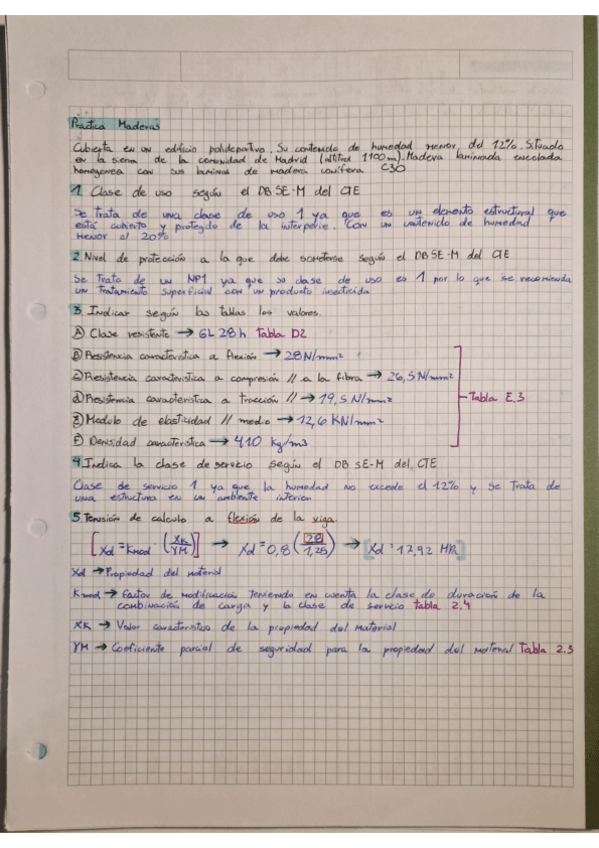 Práctica Maderas
Cubierta en un edificio polideportivo. Su contenido de humedad menor del 12%. Situado
en la sierra de la comunidad de Madrid (altitud 1100m). Madera laminada encolada
homogenea con sus laminas de madera conífera C30
1. Clase de uso según el DB SE-M del CTE
Se trata de una clase de uso 1 ya que es un elemento estructural que
está cubierto y protegido de la interperie. Con un contenido de humedad
menor al 20%
2. Nivel de protección a la que debe someterse según el DB SE-M del CTE
Se trata de un NP1 ya que su clase de uso es 1 por lo que se recomienda
un tratamiento superficial con un producto insecticida
3. Indicar según las tablas los valores.
A) Clase resistente → GL 28 h Tabla D2
B) Resistencia característica a flexión → 28 N/mm²
C) Resistencia característica a compresión // a la fibra → 26,5 N/mm²
d) Resistencia característica a tracción // → 19,5 N/mm² Tabla E.3
E) Modulo de elasticidad // medio → 12,6 KN/mm²
F) Densidad característica → 410 kg/m3
4. Indica la clase de servicio según el DB SE-M del CTE
Clase de servicio 1 ya que la humedad no excede el 12% y se trata de
una estructura en un ambiente interior
5. Tensión de calculo a flexión de la viga.
[Xd = Kmod · (XK/γM)] → Xd = 0,8 (28/1,25) → [Xd = 17,92 MPa]
Xd → Propiedad del material
Kmod → factor de modificación teniendo en cuenta la clase de duración de la
combinación de carga y la clase de servicio tabla 2.4
XK → Valor característico de la propiedad del material
γM → Coeficiente parcial de seguridad para la propiedad del material Tabla 2.3